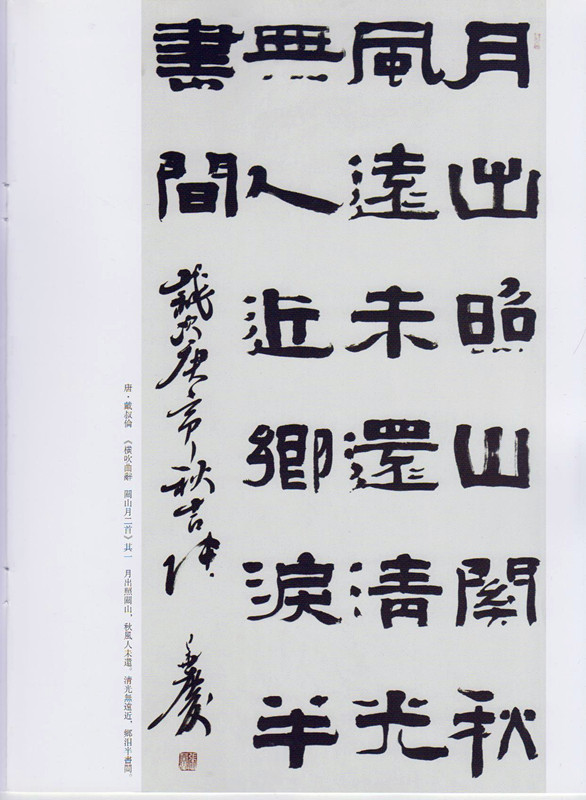 月出照山関秋
風遠未還清光
無人近鄉淚半
書間
庚
秋吉
慶
唐·戴叔倫 《橫吹曲辭 關山月二首》其一 月出照關山，秋風人未還。清光無遠近，鄉泪半書間。